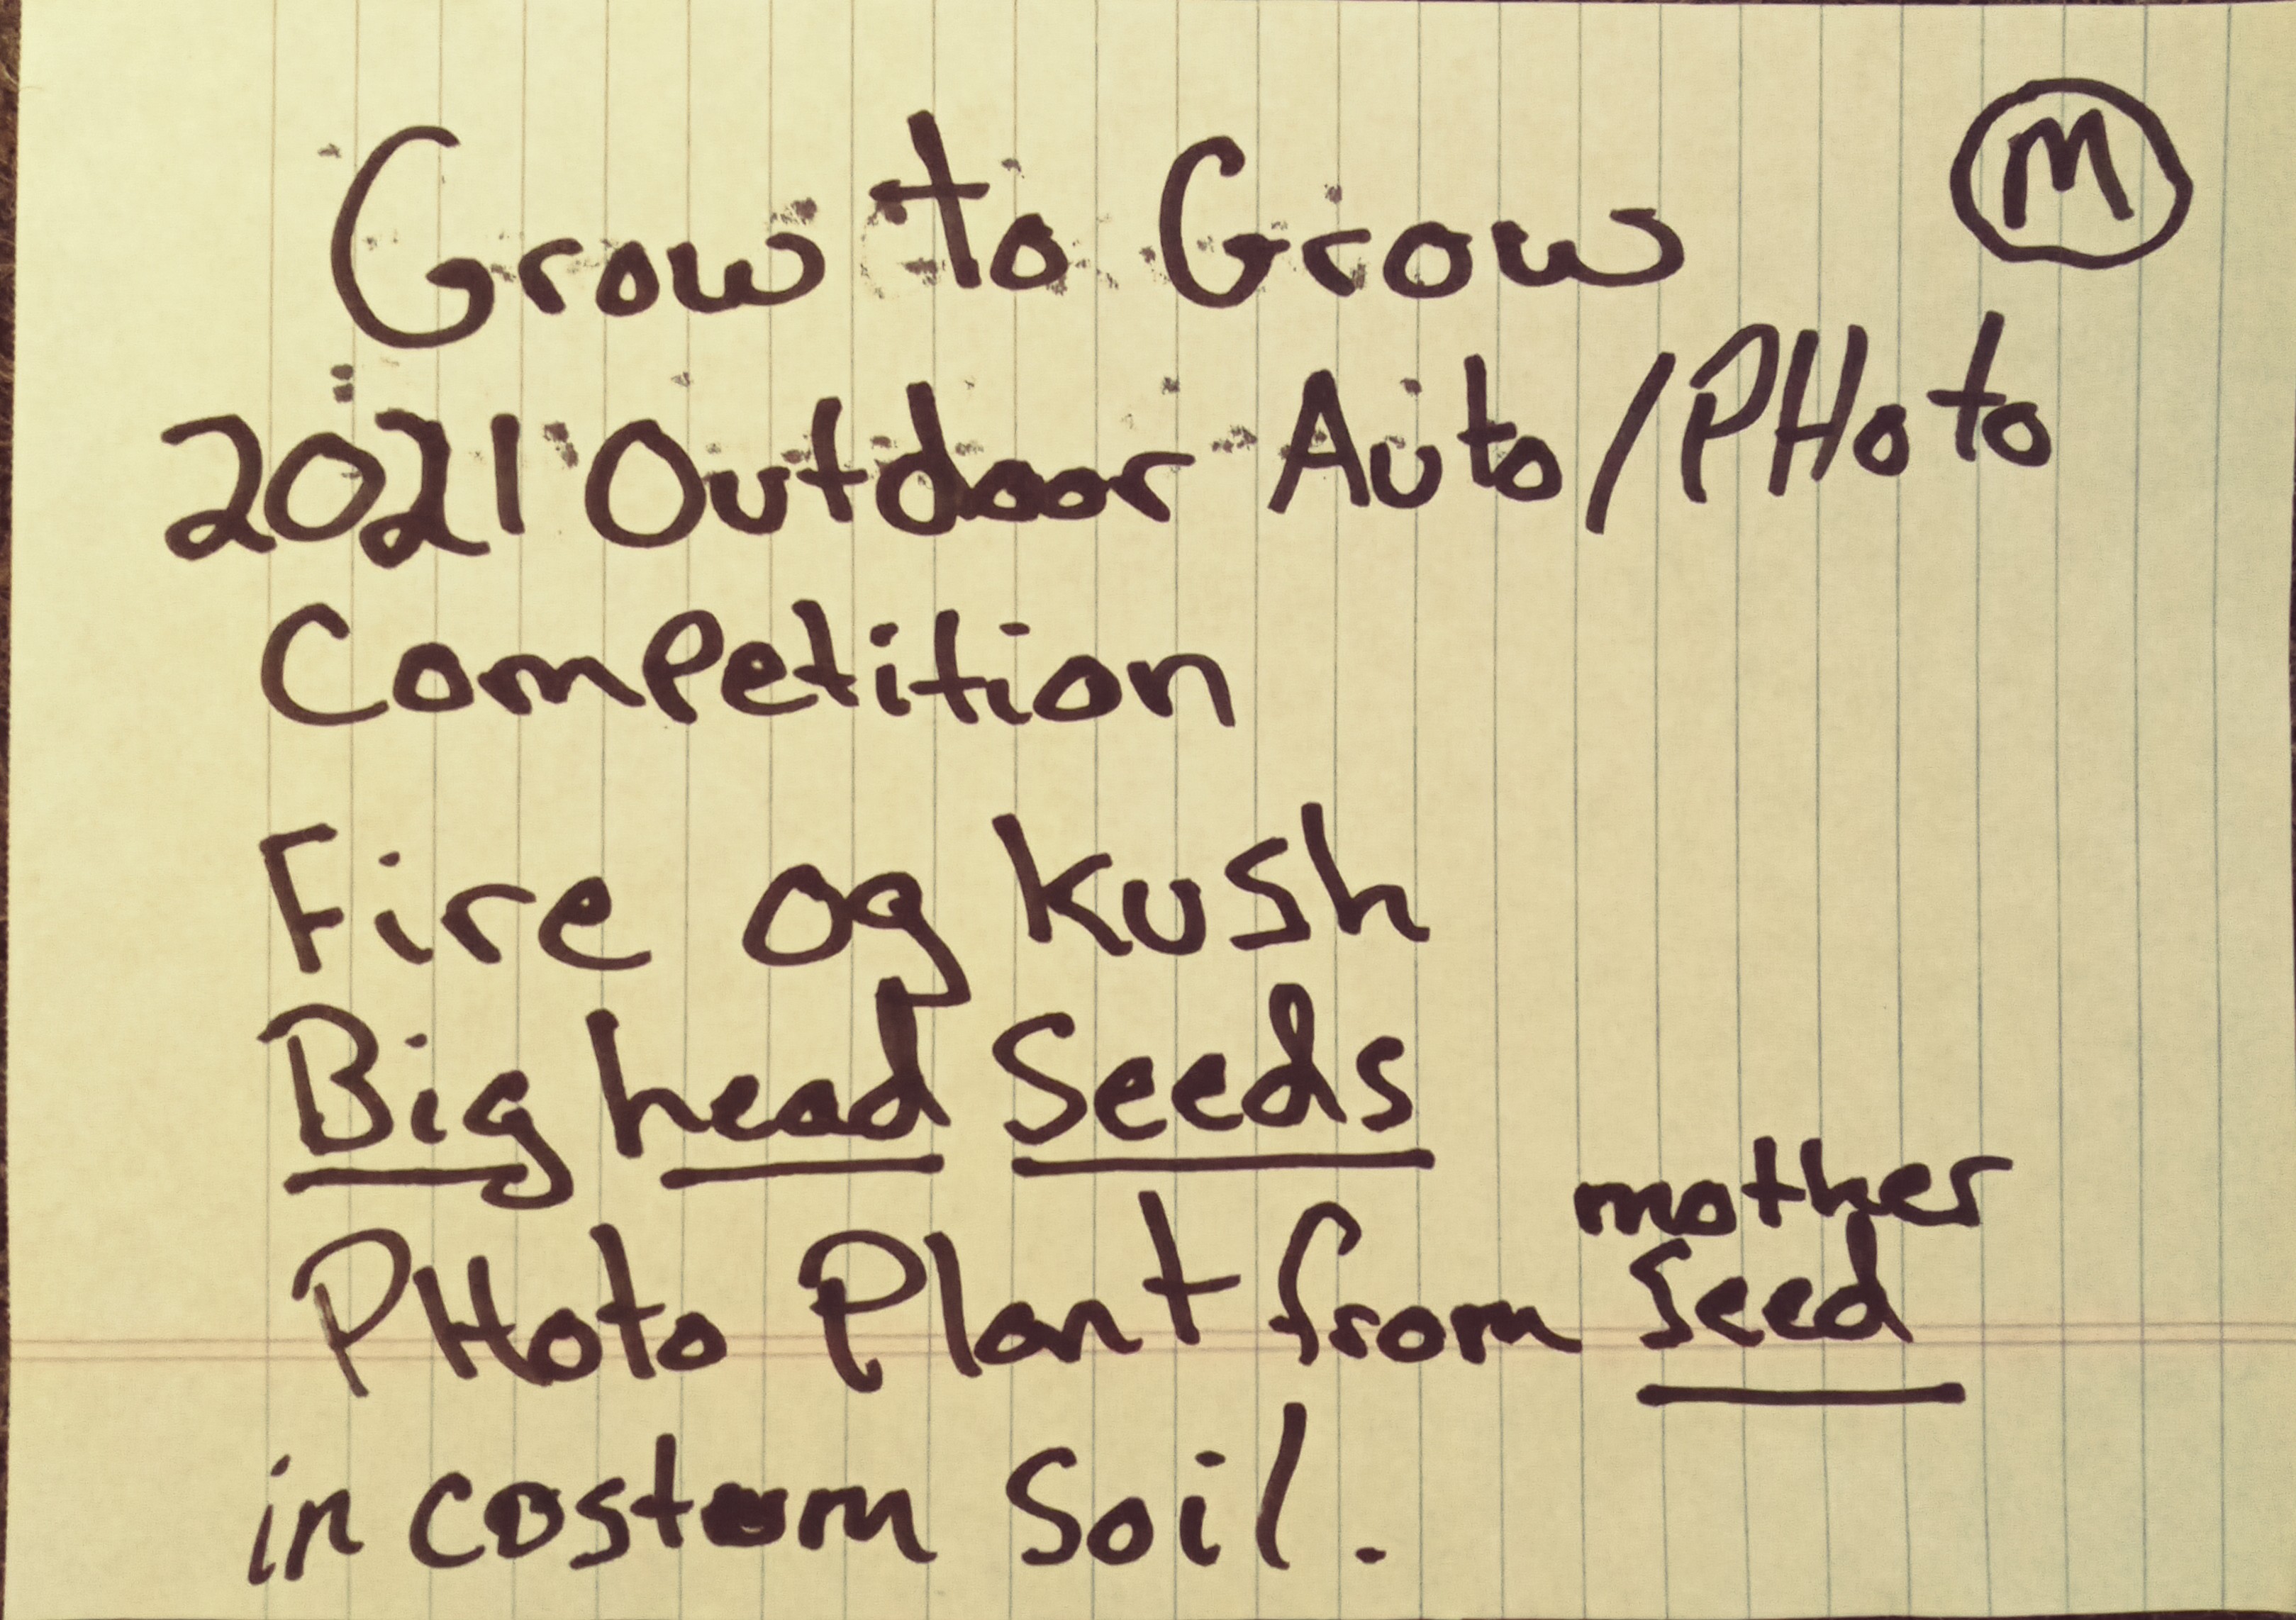 Grow to Grow M
2021 Outdoor Auto/PHoto
Competition
Fire og Kush
Big head Seeds
mother
PHoto Plant from Seed
in costom Soil.